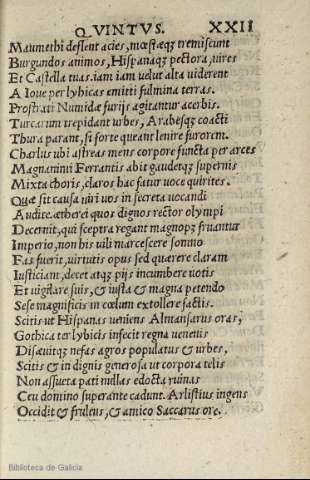 QVINTVS. XXII
Maumethi deflent acies, mœstæqȝ tremiscunt
Burgundos animos, Hispanaqȝ pectora, uires
Et Castella tuas. iam iam uelut alta uiderent
A Ioue per lybicas emitti fulmina terras.
Prostrati Numidæ furijs agitantur acerbis.
Turcarum trepidant urbes, Arabesqȝ coacti
Thura parant, si forte queant lenire furorem.
Charlus ubi astreas mens corpore functa per arces
Magnanimi Ferrantis abit gaudetqȝ supernis
Mixta choris, claros hac fatur uoce quirites.
Quæ sit causa uiri uos in secreta uocandi
Audite. æthereæ quos dignos rector olympi
Decernit, qui sceptra regant magnopȝ fruantur
Imperio, non his uili marcescere somno
Fas fuerit, uirtutis opus sed quærere claram
Iusticiam, decet atqȝ pijs incumbere uotis
Et uigilare suis, & iusta & magna petendo
Sese magnificis in cœlum extollere factis.
Scitis ut Hispanas ueniens Almansarus oras,
Gothica ter lybicis infecit regna uenenis
Disæuitqȝ nefas agros populatus & urbes,
Scitis & in dignis generosa ut corpora telis
Non assueta pati nullas edocta ruinas
Ceu domino superante cadunt. Arlistius ingens
Occidit & frulens, & amico Saccarus ore.
Biblioteca de Galicia